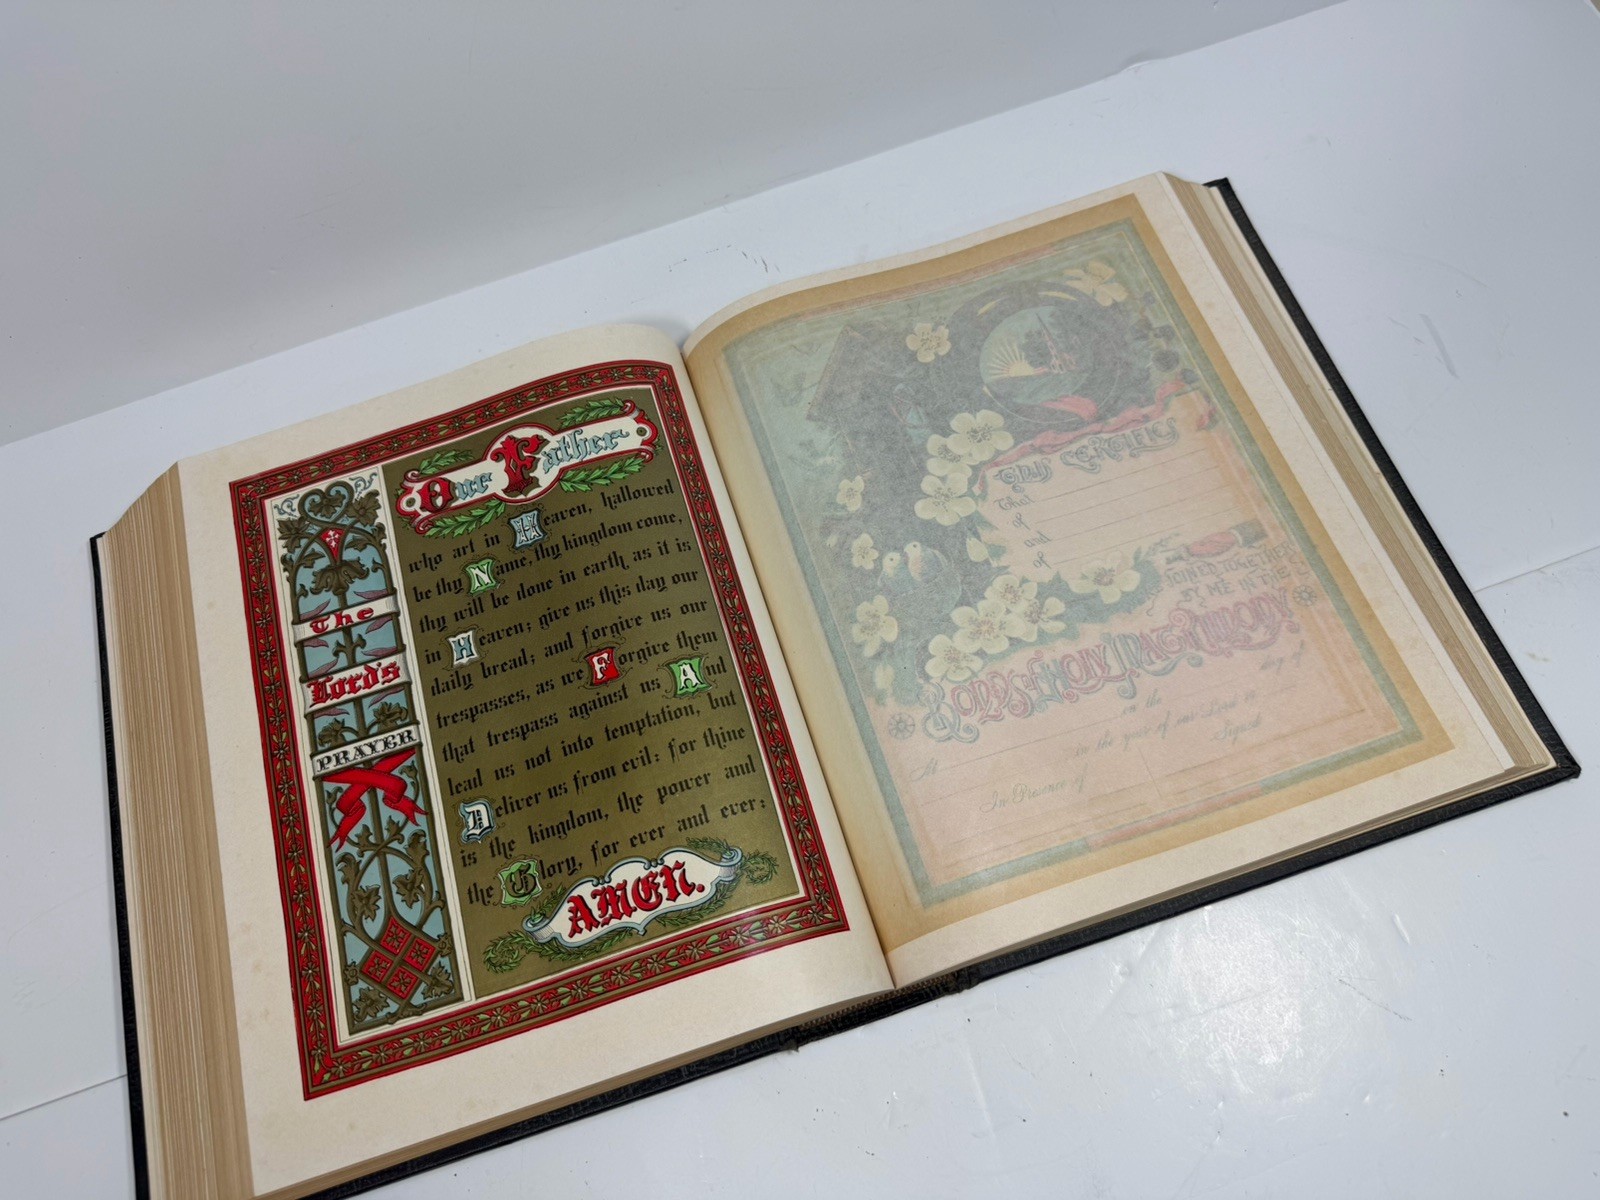 Our Father
who art in Heaven, hallowed
be thy Name, thy kingdom come,
thy will be done in earth as it is
in Heaven; give us this day our
daily bread; and forgive us our
trespasses, as we Forgive them
that trespass against us And
lead us not into temptation, but
Deliver us from evil: for thine
is the kingdom, the power and
the Glory, for ever and ever:
AMEN.
The
Lord's
PRAYER
This Certifies
That
of
and
of
JOINED TOGETHER
BY ME IN THE
Bonds of Holy Matrimony
on the day of
At in the year of our Lord 18
In Presence of Signed